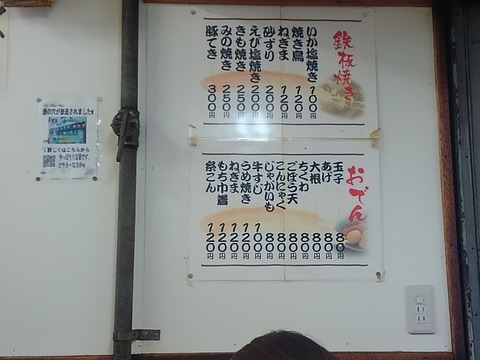 鉄板焼き
いか塩焼き 100円
焼き鳥 120円
ねぎま 120円
砂ずり 200円
えび塩焼き 200円
きも焼き 250円
みの焼き 250円
豚てき 300円
おでん
玉子 80円
あげ 80円
大根 80円
ちくわ 80円
ごぼう天 80円
こんにゃく 80円
じゃがいも 80円
牛すじ 100円
うめ焼き 120円
ねぎま 120円
もち巾着 120円
祭こん 120円
穴が放送されました
詳しくはこちらから